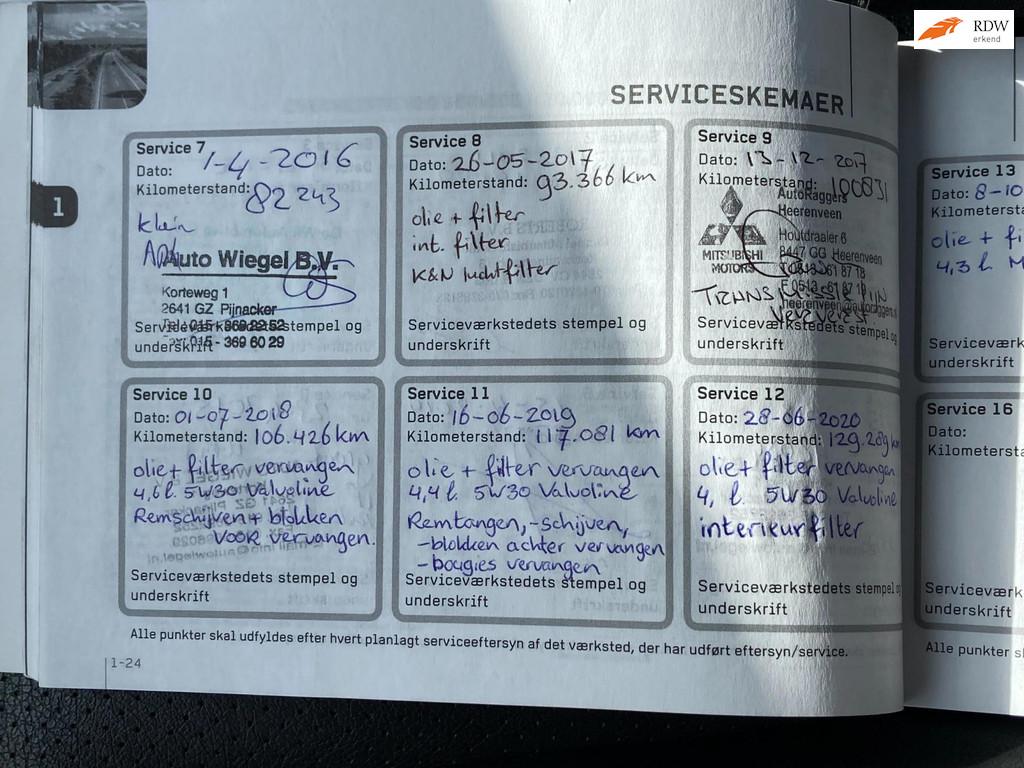 RDW
erkend
SERVICESKEMAER
1
Service 7
Dato: 1-4-2016
Kilometerstand: 82243
klein
Auto Wiegel B.V.
Korteweg 1
2641 GZ Pijnacker
Tel: 015 - 369 22 52
015 - 369 60 29
Serviceværkstedets stempel og
underskrift
Service 8
Dato: 26-05-2017
Kilometerstand: 93.366 km
olie + filter
int. filter
K&N luchtfilter
Serviceværkstedets stempel og
underskrift
Service 9
Dato: 13-12-2017
Kilometerstand: 100831
AutoRaggers
Heerenveen
Houtdraaier 6
8447 GG Heerenveen
MITSUBISHI
MOTORS
Serviceværkstedets stempel og
underskrift
Service 10
Dato: 01-07-2018
Kilometerstand: 106.426km
olie + filter vervangen
4,6 l. 5W30 Valvoline
Remschijven + blokken
voor vervangen.
Serviceværkstedets stempel og
underskrift
Service 11
Dato: 16-06-2019
Kilometerstand: 117.081 km
olie + filter vervangen
4,4 l. 5W30 Valvoline
Remtangen, -schijven,
-blokken achter vervangen
-bougies vervangen
Serviceværkstedets stempel og
underskrift
Service 12
Dato: 28-06-2020
Kilometerstand: 129.289 km
olie + filter vervangen
4, l. 5W30 Valvoline
interieurfilter
Serviceværkstedets stempel og
underskrift
Alle punkter skal udfyldes efter hvert planlagt serviceeftersyn af det værksted, der har udført eftersyn/service.
1-24
Service 13
Dato: 8-10
Kilometersta
olie + fi
4,3 l. M
Serviceværk
underskrift
Service 16
Dato:
Kilometersta
Serviceværk
underskrift
Alle punkter s